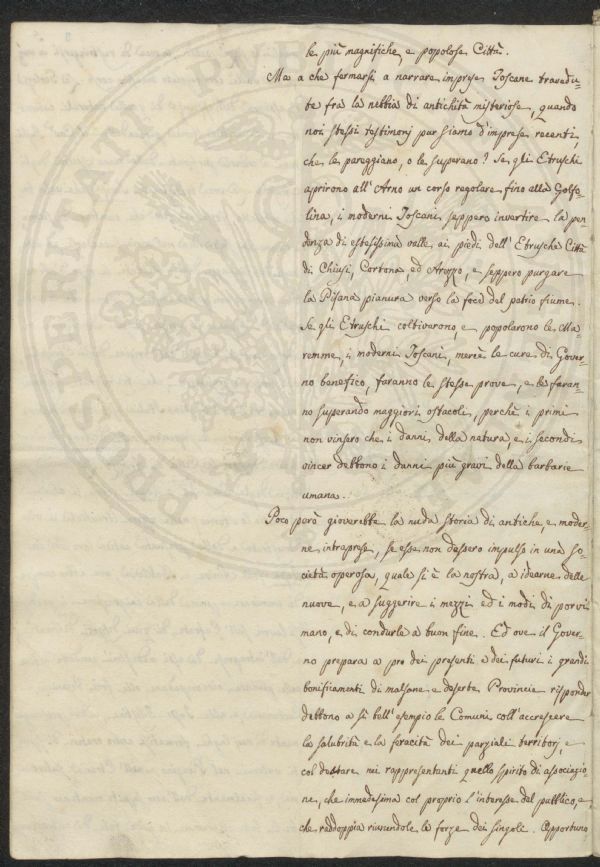 le più magnifiche, e popolose Città.
Ma a che fermarsi a narrare imprese Toscane travedu-
te fra la nebbia di antichità misteriose, quando
noi stessi testimonj pur siamo d'imprese recenti,
che le pareggiano, o le superano? Se gli Etruschi
aprirono all'Arno un corso regolare fino alla Golfo-
lina, i moderni Toscani seppero invertire la pen-
denza di estesissima valle ai piedi dell'Etrusche Città
di Chiusi, Cortona, ed Arezzo, e seppero purgare
la Pisana pianura verso la foce del patrio fiume.
Se gli Etruschi coltivarono, e popolarono le Ma-
remme, i moderni Toscani, mercè le cure di Gover-
no benefico, faranno le stesse prove, e le faran-
no superando maggiori ostacoli, perchè i primi
non vinsero che i danni della natura, e i secondi
vincer debbono i danni più gravi della barbarie
umana.
Poco però gioverebbe la nuda storia di antiche, e moder-
ne intraprese, se esse non dessero impulso in una so-
cietà operosa, quale si è la nostra, a idearne delle
nuove, e a suggerire i mezzi ed i modi di porvi
mano, e di condurle a buon fine. Ed ove il Gover-
no prepara a pro dei presenti e dei futuri i grandi
bonificamenti di malsane e deserte Provincie risponder
debbono a sì bell'esempio le Comuni coll'accrescere
la salubrità e la feracità dei parziali territorj, e
col destare nei rappresentanti quello spirito di associazio-
ne, che immedesima col proprio l'interesse del pubblico, e
che raddoppia riunendole le forze dei singoli. Opportuno